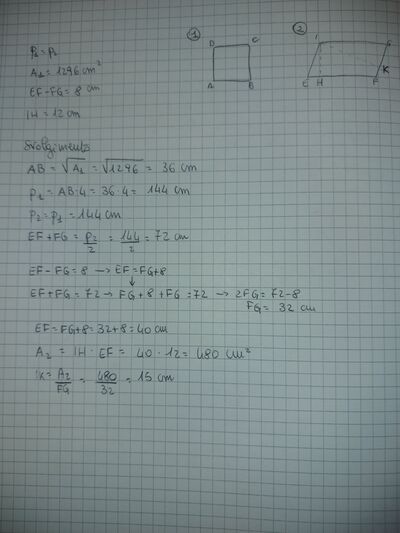 ① ②
D C I G
A B E H F K
p₁ = p₂
A₁ = 1296 cm²
EF - FG = 8 cm
IH = 12 cm
Svolgimento
AB = √A₁ = √1296 = 36 cm
p₁ = AB·4 = 36·4 = 144 cm
p₂ = p₁ = 144 cm
EF + FG = p₂/2 = 144/2 = 72 cm
EF - FG = 8 → EF = FG + 8
↓
EF + FG = 72 → FG + 8 + FG = 72 → 2FG = 72 - 8
FG = 32 cm
EF = FG + 8 = 32 + 8 = 40 cm
A₂ = IH · EF = 40 · 12 = 480 cm²
IK = A₂/FG = 480/32 = 15 cm